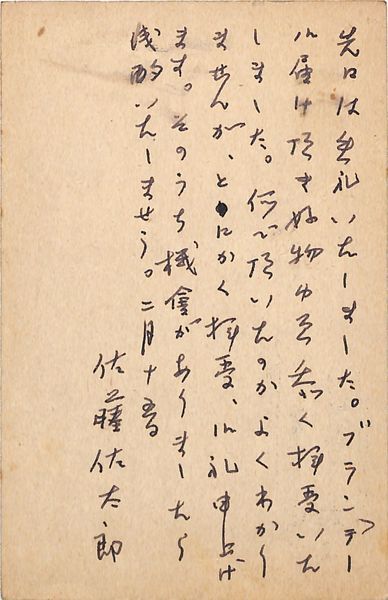 先日は失礼いたしました。ブランデー
御届け頂き好物ゆゑ忝く拝受いた
しました。何で頂いたのかよくわかり
ませんが、とにかく拝受、御礼申上げ
ます。そのうち機會がありましたら
浅酌いたしませう。二月十五日
佐藤佐太郎